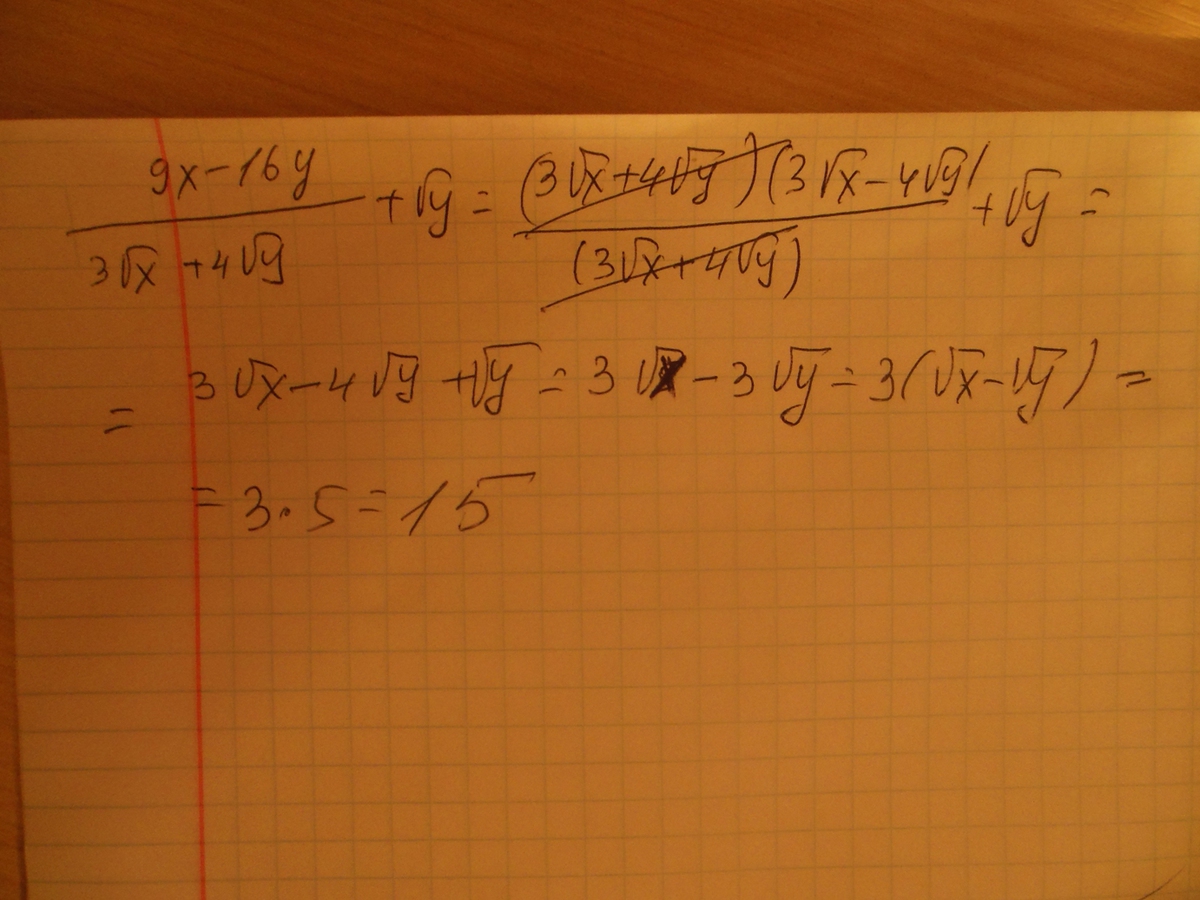 (9x-16y)/(3√x+4√y) + √y = (3√x+4√y)(3√x-4√y)/(3√x+4√y) + √y =
= 3√x-4√y+√y = 3√x-3√y = 3(√x-√y) =
= 3·5 = 15